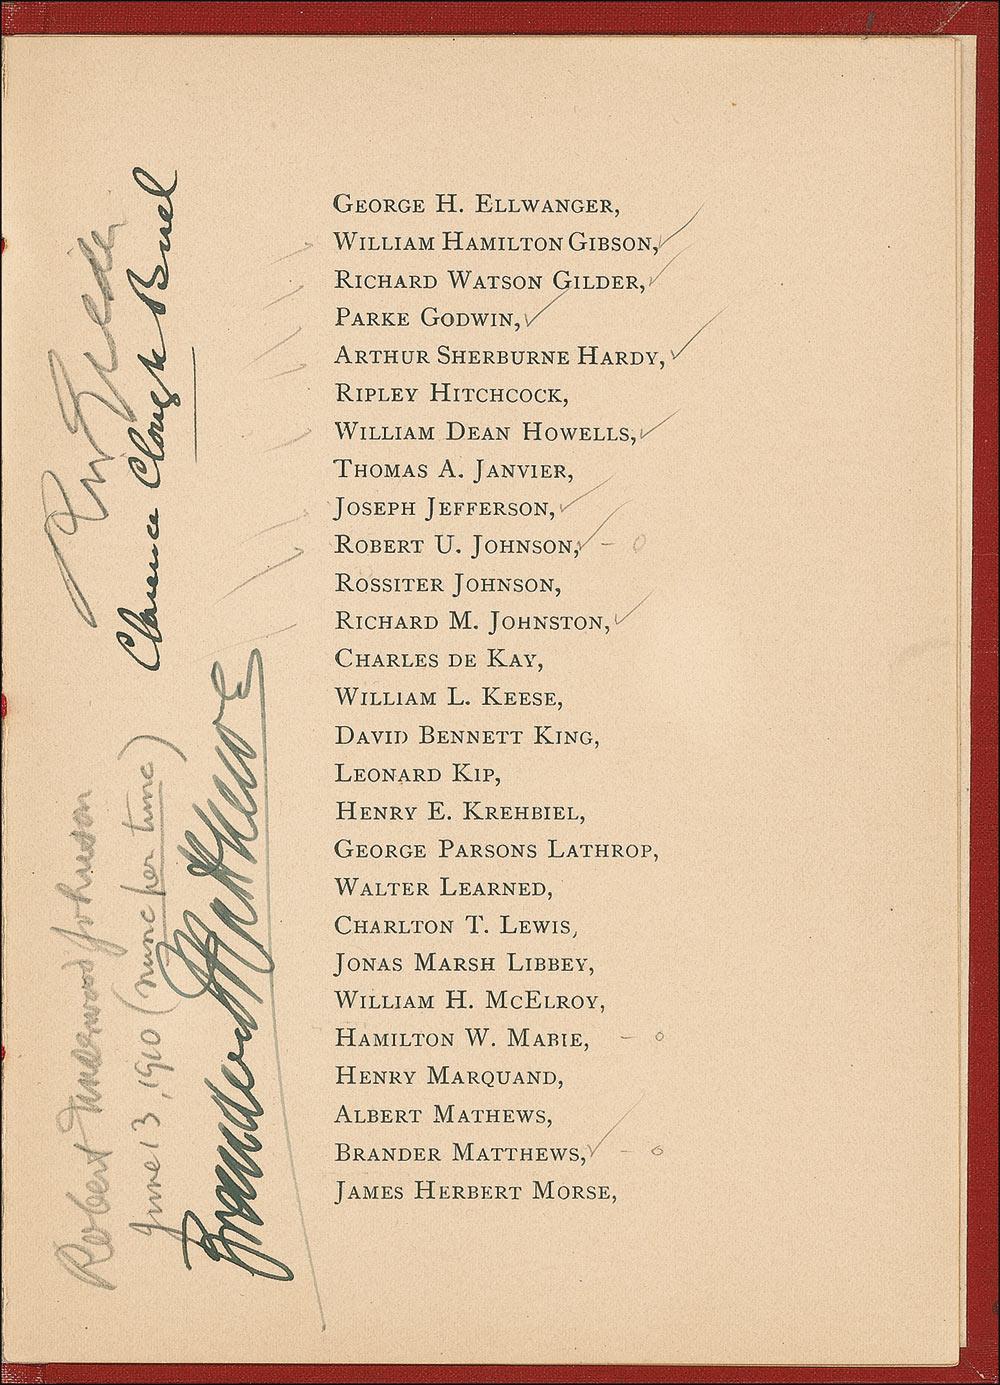 GEORGE H. ELLWANGER,
WILLIAM HAMILTON GIBSON,
RICHARD WATSON GILDER,
PARKE GODWIN,
ARTHUR SHERBURNE HARDY,
RIPLEY HITCHCOCK,
WILLIAM DEAN HOWELLS,
THOMAS A. JANVIER,
JOSEPH JEFFERSON,
ROBERT U. JOHNSON, - o
ROSSITER JOHNSON,
RICHARD M. JOHNSTON,
CHARLES DE KAY,
WILLIAM L. KEESE,
DAVID BENNETT KING,
LEONARD KIP,
HENRY E. KREHBIEL,
GEORGE PARSONS LATHROP,
WALTER LEARNED,
CHARLTON T. LEWIS,
JONAS MARSH LIBBEY,
WILLIAM H. MCELROY,
HAMILTON W. MABIE, - o
HENRY MARQUAND,
ALBERT MATHEWS,
BRANDER MATTHEWS, - o
JAMES HERBERT MORSE,
R W Gilder
Clarence Clough Buel
Robert Underwood Johnson
June 13, 1910 (nunc per tunc)
Brander Matthews